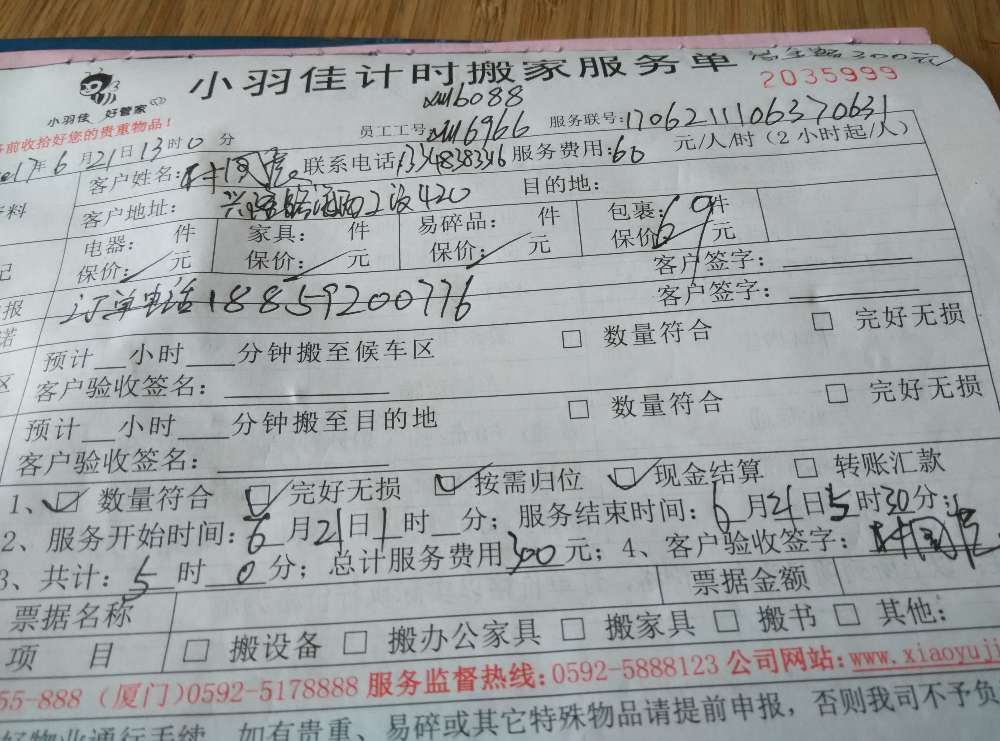 小羽佳计时搬家服务单 300元
小羽佳 好管家 2035999
前收拾好您的贵重物品！ 员工工号: xm6088 xm6966 服务联号: 170621110637 0631
2017年6月21日13时0分
客户姓名: 联系电话: 服务费用: 60 元/人/时（2小时起/人）
客户地址: 420 目的地:
电器: 件 家具: 件 易碎品: 件 包裹: 件
保价: 元 保价: 元 保价: 元 保价: 元
客户签字:
订单电话18859200776 客户签字:
预计__小时___分钟搬至候车区 □ 数量符合 □ 完好无损
客户验收签名:
预计__小时___分钟搬至目的地 □ 数量符合 □ 完好无损
客户验收签名:
1、☑ 数量符合 ☑ 完好无损 ☑ 按需归位 ☑ 现金结算 □ 转账汇款
2、服务开始时间: 6月21日1时_分; 服务结束时间: 6月21日5时30分;
3、共计: 5时0分; 总计服务费用300元; 4、客户验收签字:
票据名称 票据金额
项目 □ 搬设备 □ 搬办公家具 □ 搬家具 □ 搬书 □ 其他:
55-888（厦门)0592-5178888 服务监督热线:0592-5888123 公司网站:www.xiaoyujj
好物业通行手续，如有贵重、易碎或其它特殊物品请提前申报，否则我司不予负